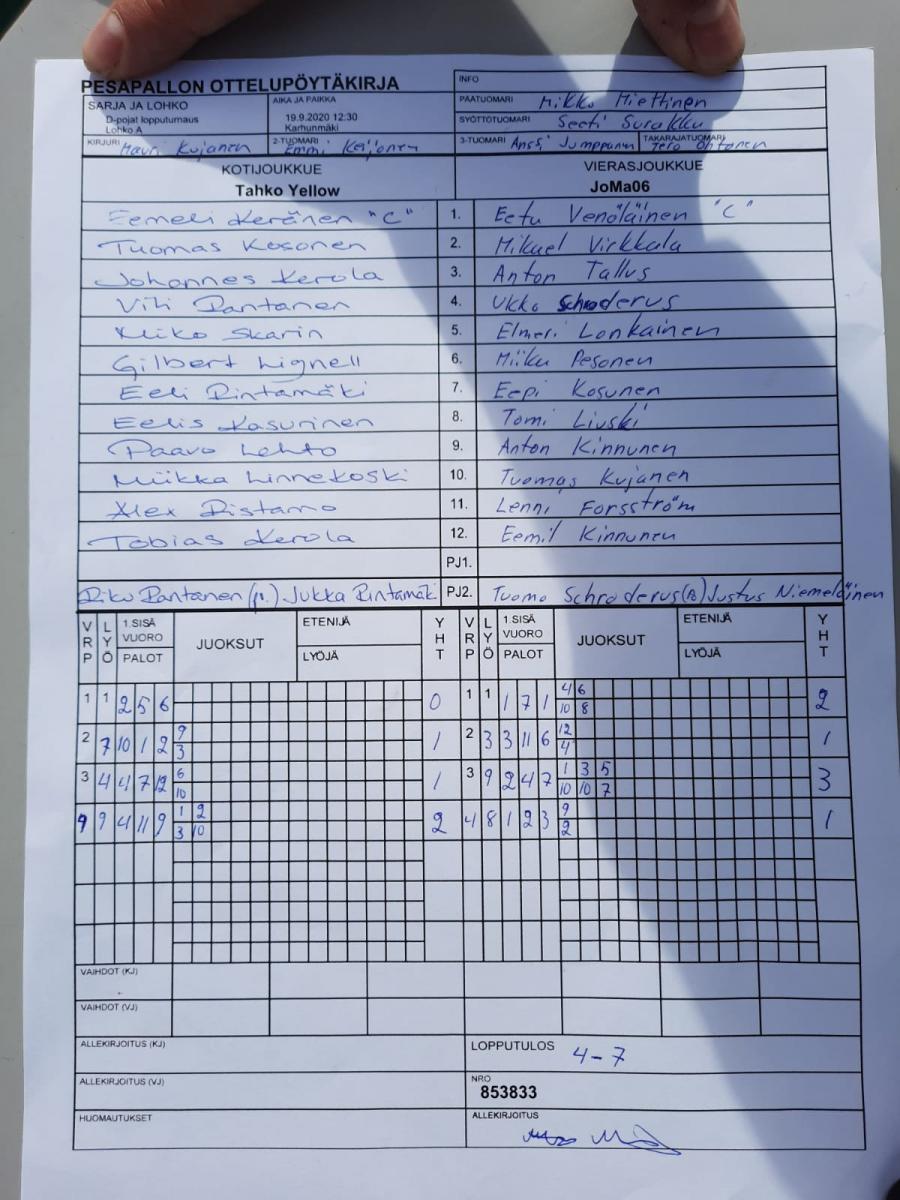 PESÄPALLON OTTELUPÖYTÄKIRJA
INFO
SARJA JA LOHKO
D-pojat lopputurnaus
Lohko A
AIKA JA PAIKKA
19.9.2020 12:30
Karhunmäki
PÄÄTUOMARI Mikko Miettinen
SYÖTTÖTUOMARI Seeti Surakku
KIRJURI Mauri Kujanen
2-TUOMARI Emmi Keijonen
3-TUOMARI Anssi Jumppanen
TAKARAJATUOMARI Tero Ohtonen
KOTIJOUKKUE
Tahko Yellow
VIERASJOUKKUE
JoMa06
Eemeli Keränen "C" 1. Eetu Venäläinen "C"
Tuomas Kosonen 2. Mikael Virkkala
Johannes Kerola 3. Anton Tallus
Vili Rantanen 4. Ukko Schroderus
Miko Skarin 5. Elmeri Lonkainen
Gilbert Lignell 6. Miiku Pesonen
Eeli Rintamäki 7. Eepi Kosunen
Eelis Kasurinen 8. Tomi Liuski
Paavo Lehto 9. Anton Kinnunen
Miikka Linnekoski 10. Tuomas Kujanen
Alex Ristamo 11. Lenni Forsström
Tobias Kerola 12. Eemil Kinnunen
PJ1.
Riku Rantanen (p.) Jukka Rintamäki PJ2. Tuomo Schroderus (P.) Justus Niemeläinen
VRP LYÖ 1.SISÄVUORO PALOT JUOKSUT ETENIJÄ LYÖJÄ YHT VRP LYÖ 1.SISÄVUORO PALOT JUOKSUT ETENIJÄ LYÖJÄ YHT
1 1 2 5 6 0 1 1 1 7 1 4 6 2
10 8
2 7 10 1 2 9 1 2 3 3 11 6 12 1
3 4
3 4 4 7 12 6 1 3 9 2 4 7 1 3 5 3
10 10 10 7
4 9 4 11 9 1 2 2 4 8 1 2 3 9 1
3 10 2
VAIHDOT (KJ)
VAIHDOT (VJ)
ALLEKIRJOITUS (KJ)
LOPPUTULOS 4-7
ALLEKIRJOITUS (VJ)
NRO
853833
HUOMAUTUKSET
ALLEKIRJOITUS